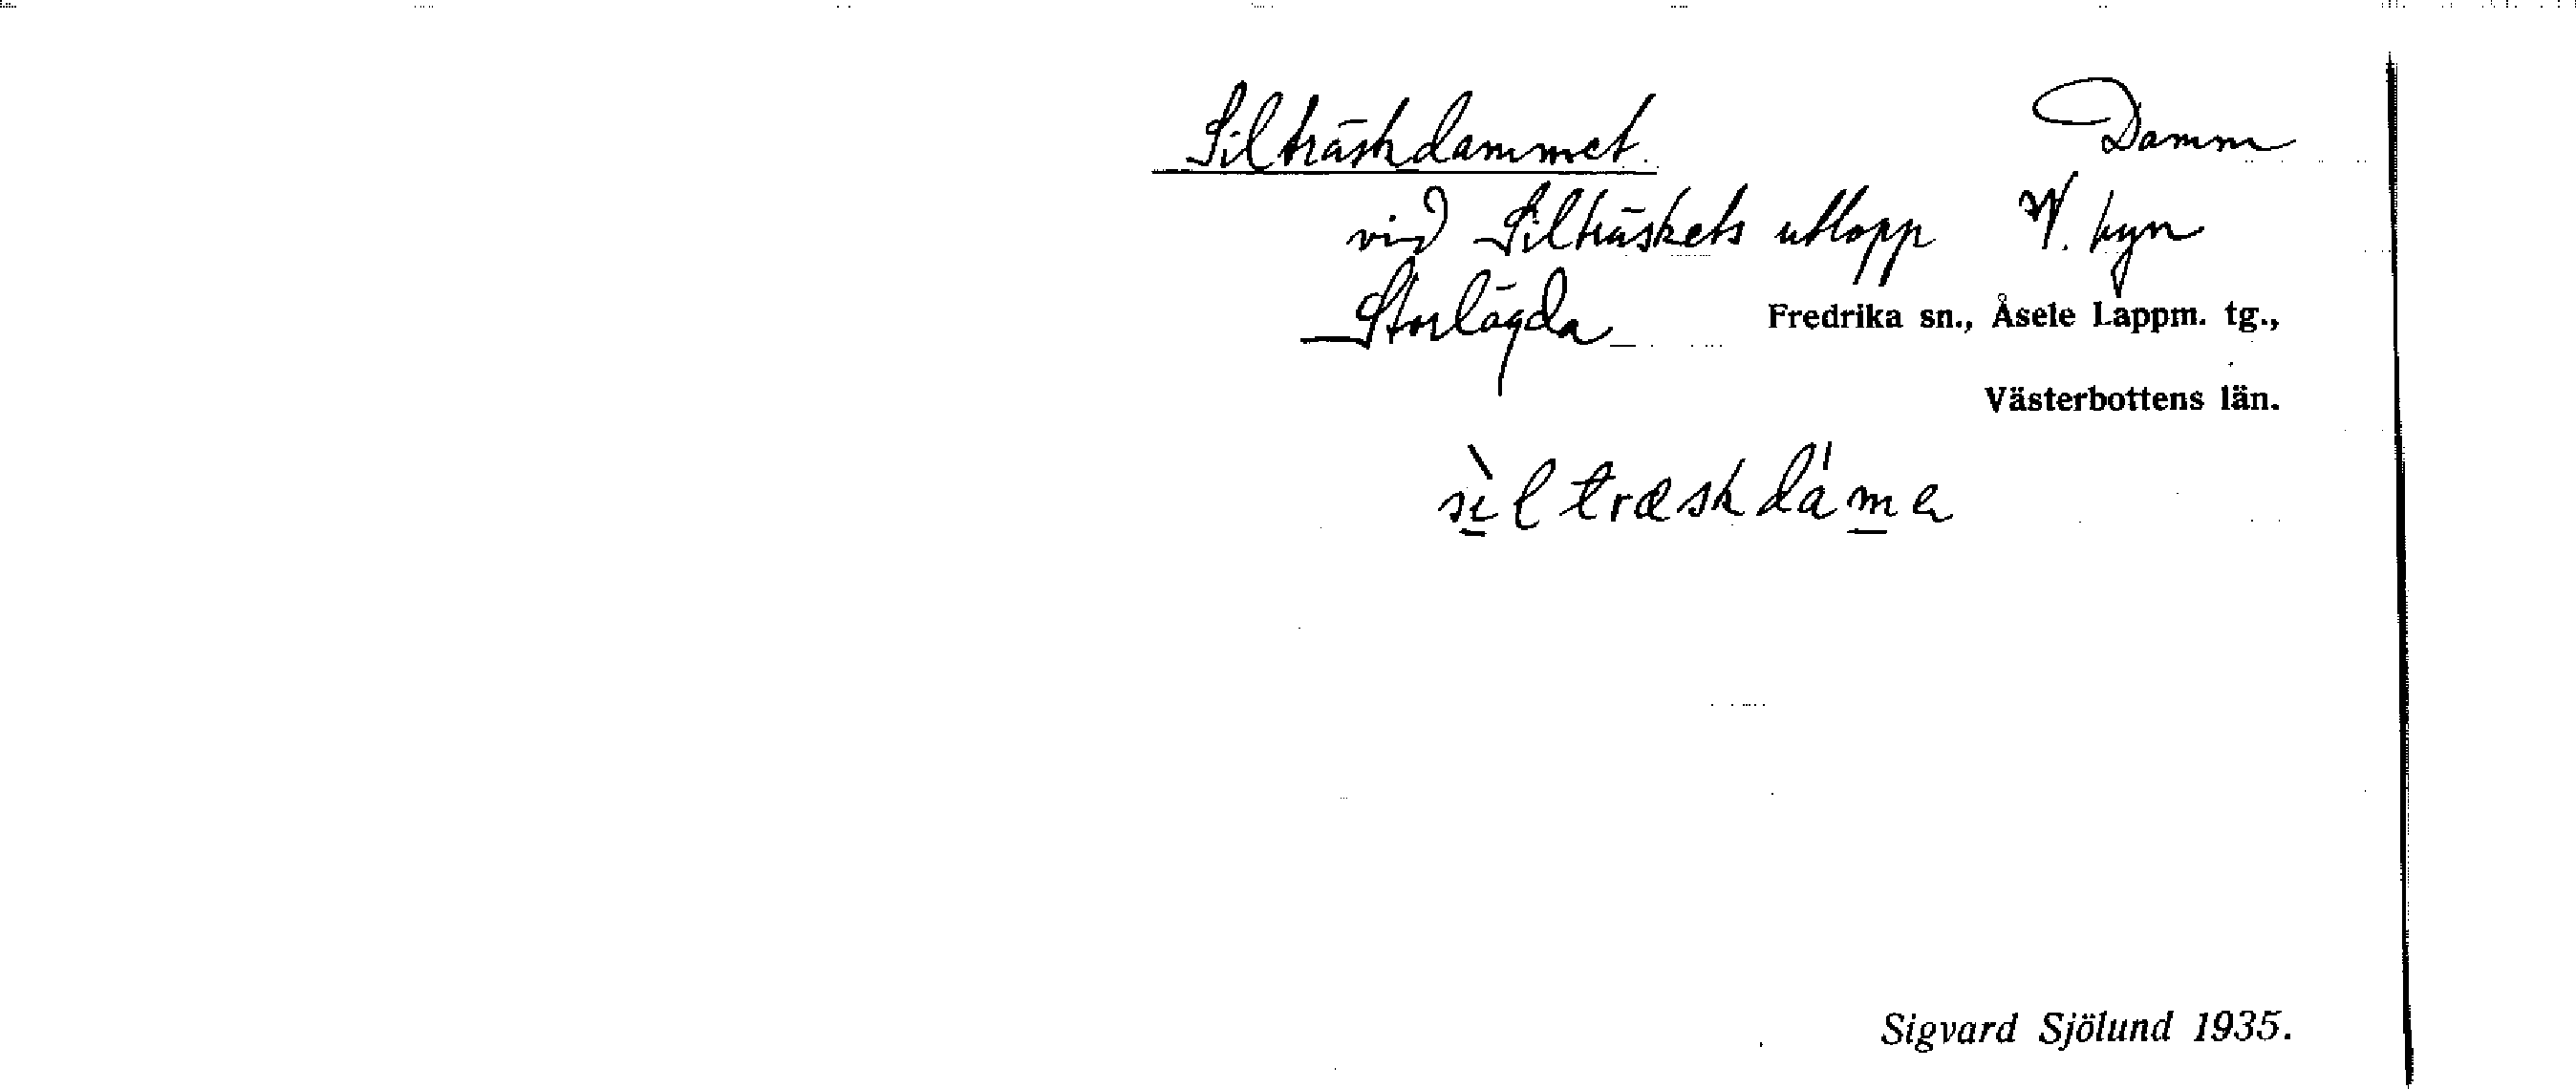 Silträskdammet. Damm
vid Silträskets utlopp V. byn
Storlögda Fredrika sn., Åsele Lappm. tg.,
Västerbottens län.
sìltræskdáma
Sigvard Sjölund 1935.